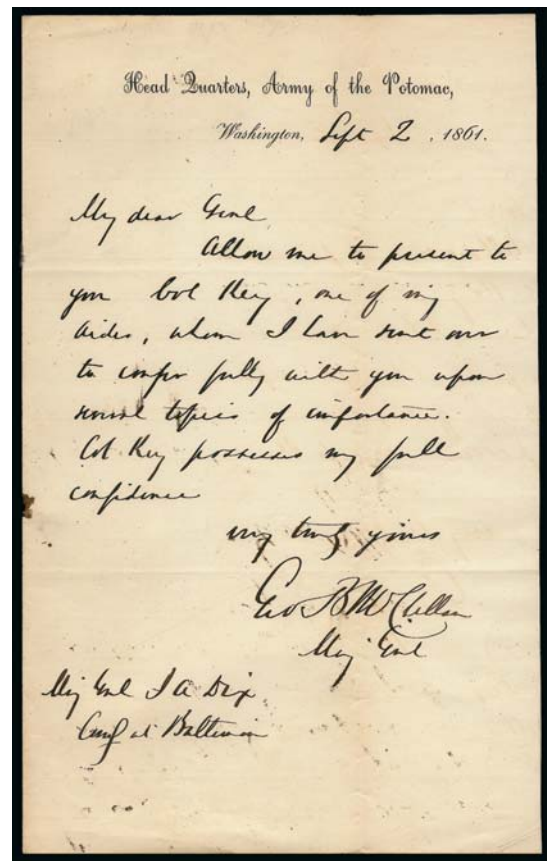 Head Quarters, Army of the Potomac,
Washington, Sept 2, 1861.
My dear Genl
Allow me to present to
you Col Key, one of my
aides, whom I have sent over
to confer fully with you upon
several topics of importance.
Col Key possesses my full
confidence
very truly yours
Geo B McClellan
Maj Genl
Maj Genl J A Dix
Comg at Baltimore